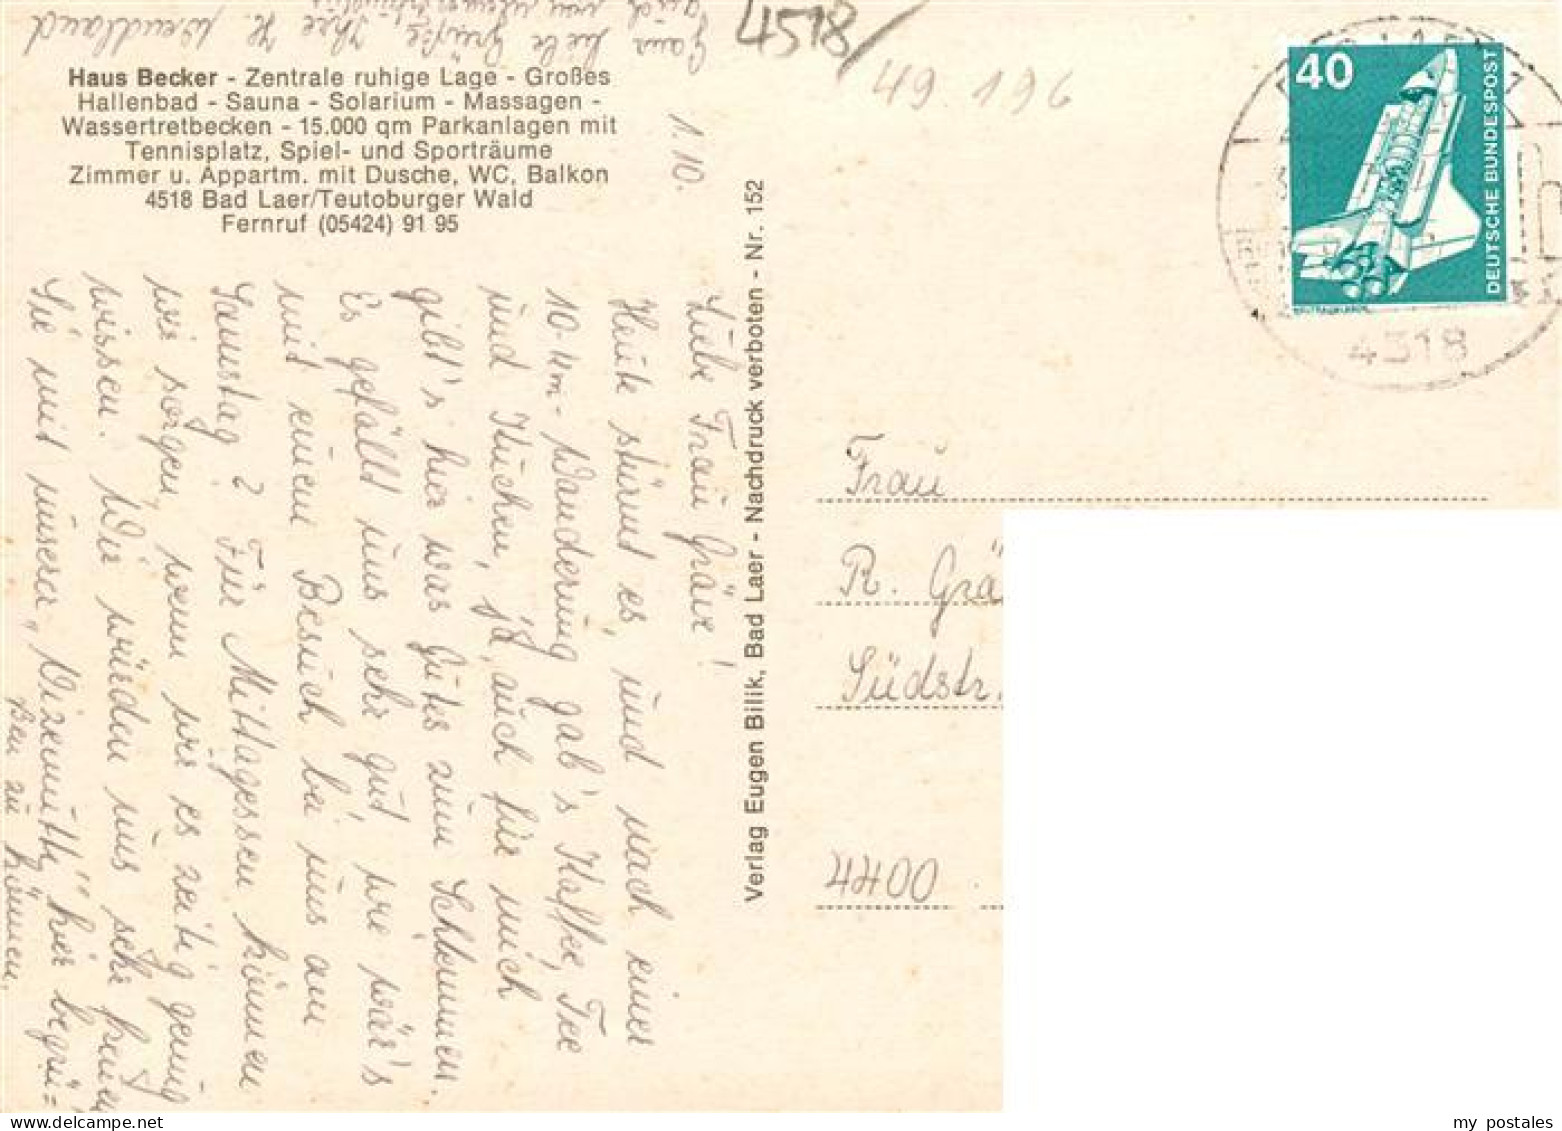 Haus Becker - Zentrale ruhige Lage - Großes
Hallenbad - Sauna - Solarium - Massagen -
Wassertretbecken - 15.000 qm Parkanlagen mit
Tennisplatz, Spiel- und Sporträume
Zimmer u. Appartm. mit Dusche, WC, Balkon
4518 Bad Laer/Teutoburger Wald
Fernruf (05424) 91 95
1.10.
Liebe Frau Gräve!
Heute stürmt es, und nach einer
10-km-Wanderung gab's Kaffee, Tee
und Kuchen, ja, auch für mich
gibt's hier was Gutes zum Schlemmen.
Es gefällt uns sehr gut, wie wär's
mit einem Besuch bei uns am
Samstag? Für Mittagessen können
wir sorgen, wenn wir es zeitig genug
wissen. Wir würden uns sehr freuen
Sie mit unserer "Vizemutti" hier begrü=
ßen zu können.
Ganz liebe Grüße Ihre H. Wendland
auch von
Verlag Eugen Bilik, Bad Laer - Nachdruck verboten - Nr. 152
4518/
49 196
40
DEUTSCHE BUNDESPOST
4518
Frau
R. Grä
Südstr.
4400
my postales